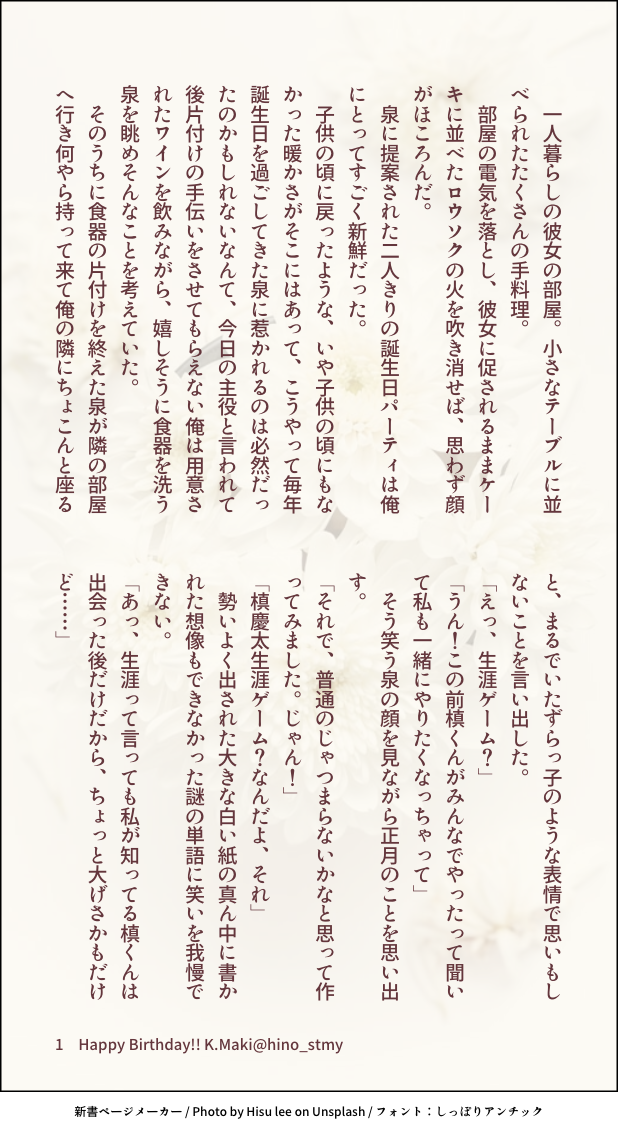 一人暮らしの彼女の部屋。小さなテーブルに並
べられたたくさんの手料理。
　部屋の電気を落とし、彼女に促されるままケー
キに並べたロウソクの火を吹き消せば、思わず顔
がほころんだ。
　泉に提案された二人きりの誕生日パーティは俺
にとってすごく新鮮だった。
　子供の頃に戻ったような、いや子供の頃にもな
かった暖かさがそこにはあって、こうやって毎年
誕生日を過ごしてきた泉に惹かれるのは必然だっ
たのかもしれないなんて、今日の主役と言われて
後片付けの手伝いをさせてもらえない俺は用意さ
れたワインを飲みながら、嬉しそうに食器を洗う
泉を眺めそんなことを考えていた。
　そのうちに食器の片付けを終えた泉が隣の部屋
へ行き何やら持って来て俺の隣にちょこんと座る
と、まるでいたずらっ子のような表情で思いもし
ないことを言い出した。
「えっ、生涯ゲーム？」
「うん！この前槙くんがみんなでやったって聞い
て私も一緒にやりたくなっちゃって」
　そう笑う泉の顔を見ながら正月のことを思い出
す。
「それで、普通のじゃつまらないかなと思って作
ってみました。じゃん！」
「槙慶太生涯ゲーム？なんだよ、それ」
　勢いよく出された大きな白い紙の真ん中に書か
れた想像もできなかった謎の単語に笑いを我慢で
きない。
「あっ、生涯って言っても私が知ってる槙くんは
出会った後だけだから、ちょっと大げさかもだけ
ど……」
1　Happy Birthday!! K.Maki@hino_stmy
新書ページメーカー / Photo by Hisu lee on Unsplash / フォント：しっぽりアンチック